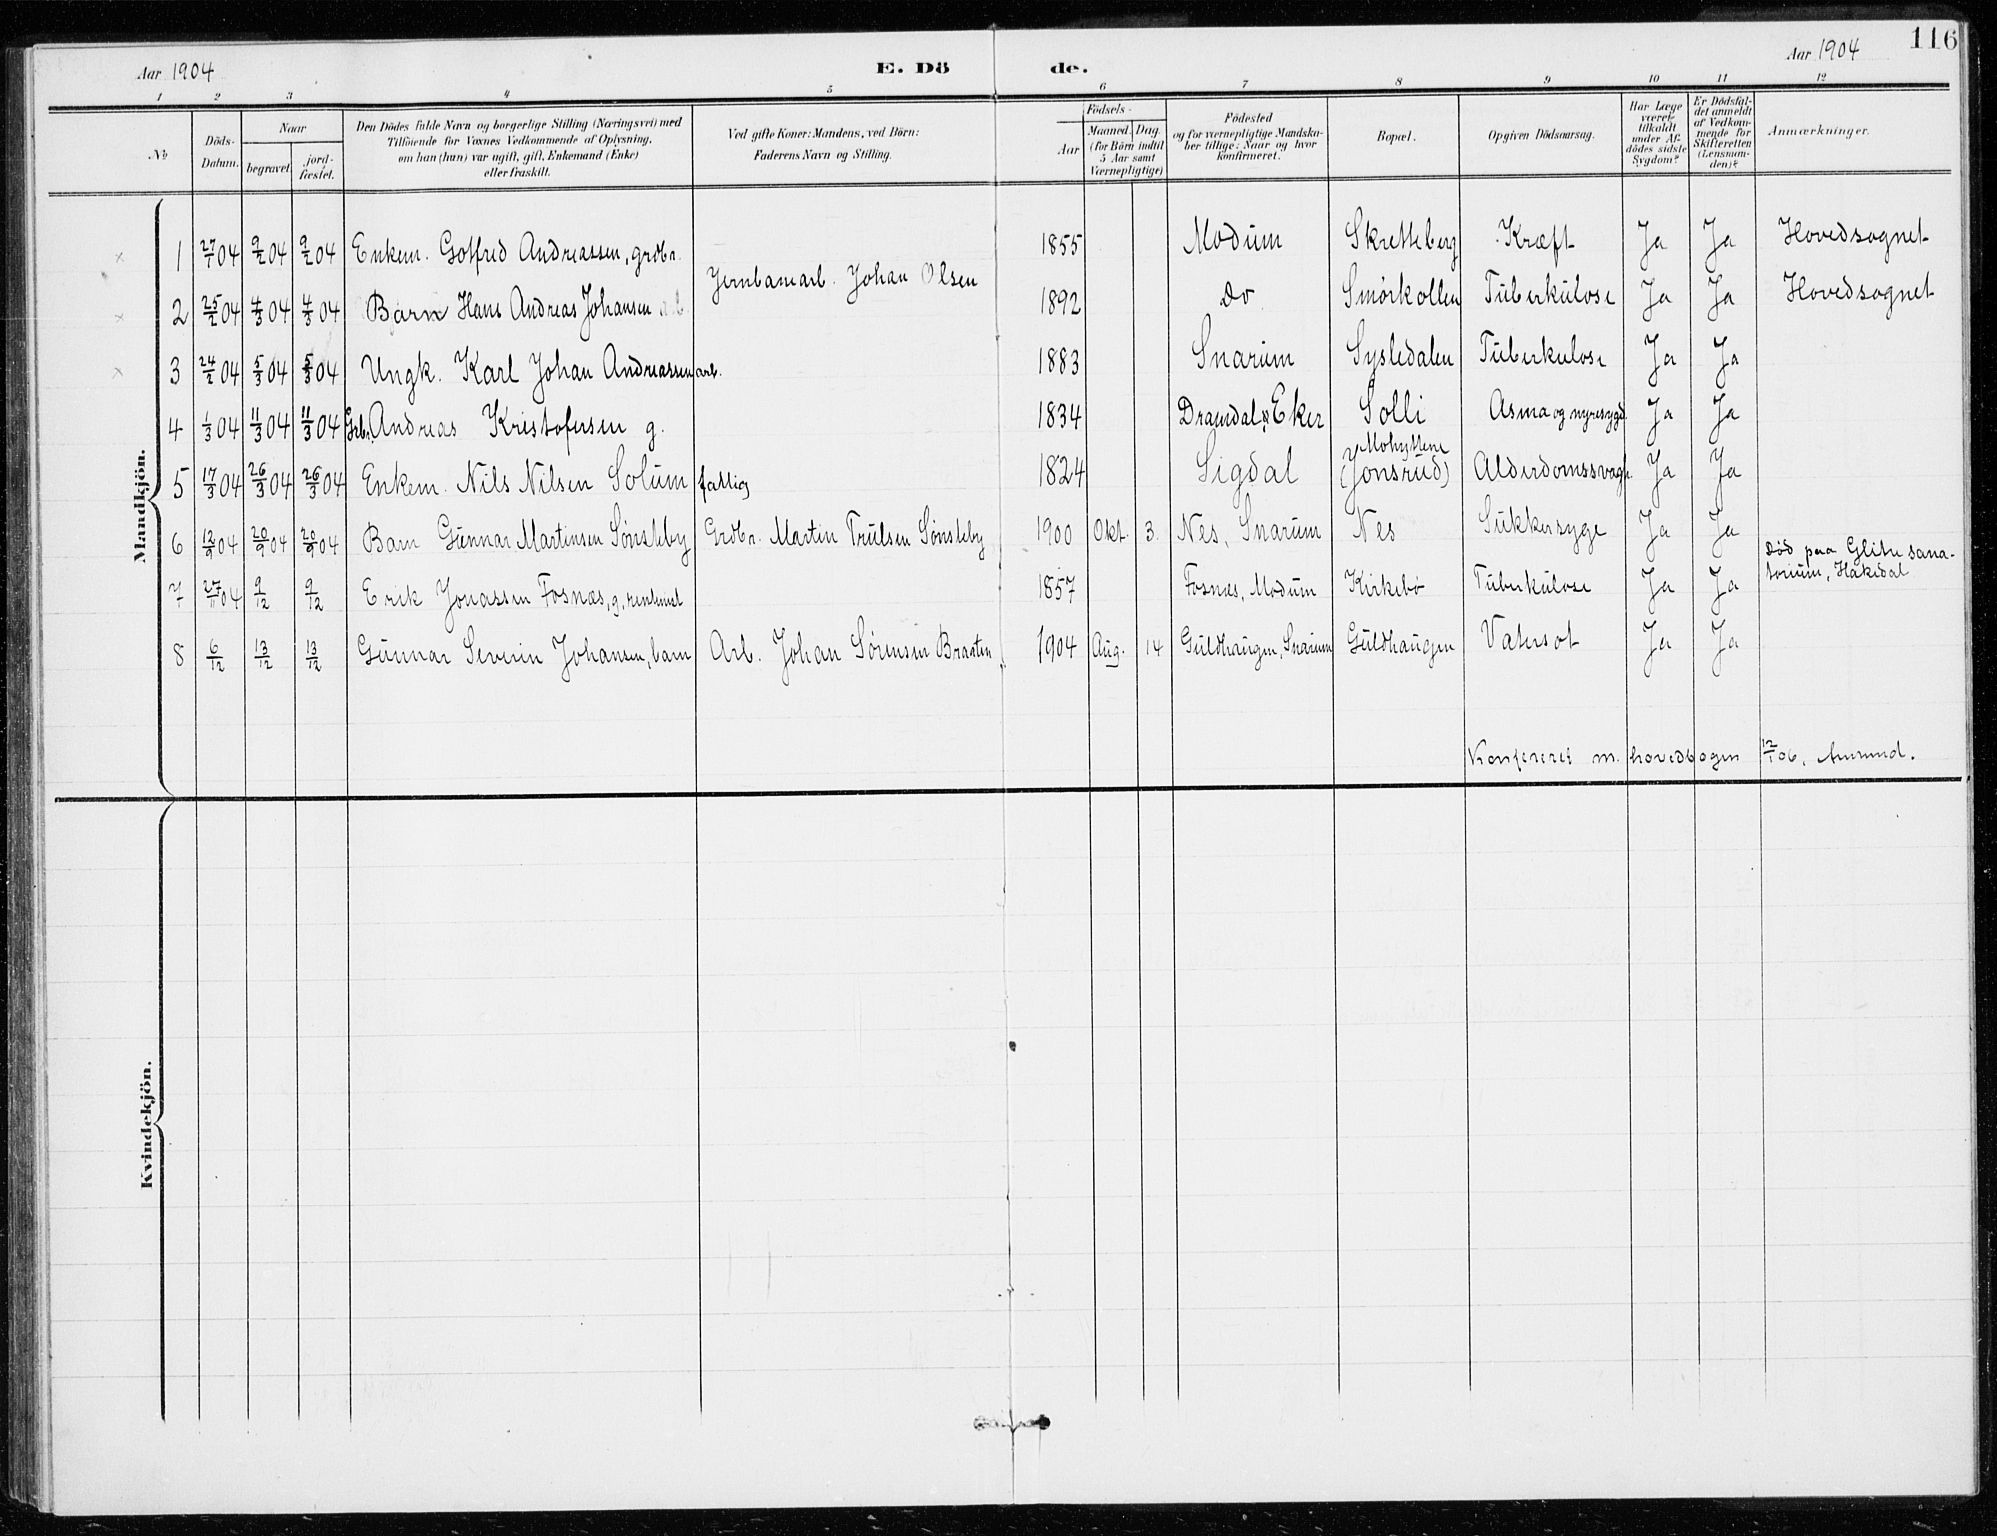 116
Aar 1904 E. Dö de. Aar 1904
1 2 3 4 5 6 7 8 9 10 11 12
№
Döds-Datum.
Naar
begravet.
jordfæstet.
Den Dödes fulde Navn og borgerlige Stilling (Næringsvei) med
Tilföiende for Voxnes Vedkommende af Oplysning,
om han (hun) var ugift, gift, Enkemand (Enke)
eller fraskilt.
Ved gifte Koner: Mandens, ved Börn:
Faderens Navn og Stilling.
Födsels-
Aar
Maaned. Dag.
(for Börn indtil
5 Aar samt
Værnepligtige)
Födested
og for værnepligtige Mandska-
ber tillige: Naar og hvor
konfirmeret.
Bopæl.
Opgiven Dödsaarsag.
Har Læge
været
tilkaldt
under Af-
dödes sidste
Sygdom?
Er Dödsfal-
det anmeldt
af Vedkom-
mende for
Skifteretten
(Lensman-
den)?
Anmærkninger.
Mandkjön.
1 27/1 04 9/2 04 9/2 04 Enkem. Gotfred Andreassen, grdbr. 1855 Modum Skretteberg Kræft Ja Ja Hovedsognet
2 25/2 04 4/3 04 4/3 04 Barn Hans Andreas Johansen Jernbanearb. Johan Olsen 1892 do Smørkollen Tuberkulose Ja Ja Hovedsognet
3 24/2 04 5/3 04 5/3 04 Ungk. Karl Johan Andreassen arb. 1883 Snarum Sysledalen Tuberkulose Ja Ja
4 1/3 04 11/3 04 11/3 04 Grbr. Andreas Kristofersen g. 1834 Eker Solli Asma og nyresygd. Ja Ja
5 17/3 04 26/3 04 26/3 04 Enkem. Nils Nilsen Solum fattig 1824 Sigdal Mohyttene
(Jonsrud) Alderdomssvagh. Ja Ja
6 12/9 04 20/9 04 20/9 04 Barn Gunnar Martinsen Sønsteby Grdbr. Martin Trulsen Sønsteby 1900 Okt. 3. Nes, Snarum Nes Sukkersyge Ja Ja
7 27/11 04 9/12 9/12 Erik Jonassen Fosnæs, g, 1857 Fosnæs, Modum Kirkebø Tuberkulose Ja Ja Død paa Glitre sana-
torium, Hakedal
8 6/12 13/12 13/12 Gunnar Severin Johansen, barn Arb. Johan Sørensen Braaten 1904 Aug. 14 Guldhaugen, Snarum Guldhaugen Vatersot Ja Ja
Konfereret m. hovedbogen 12/1 06.
Kvindekjön.